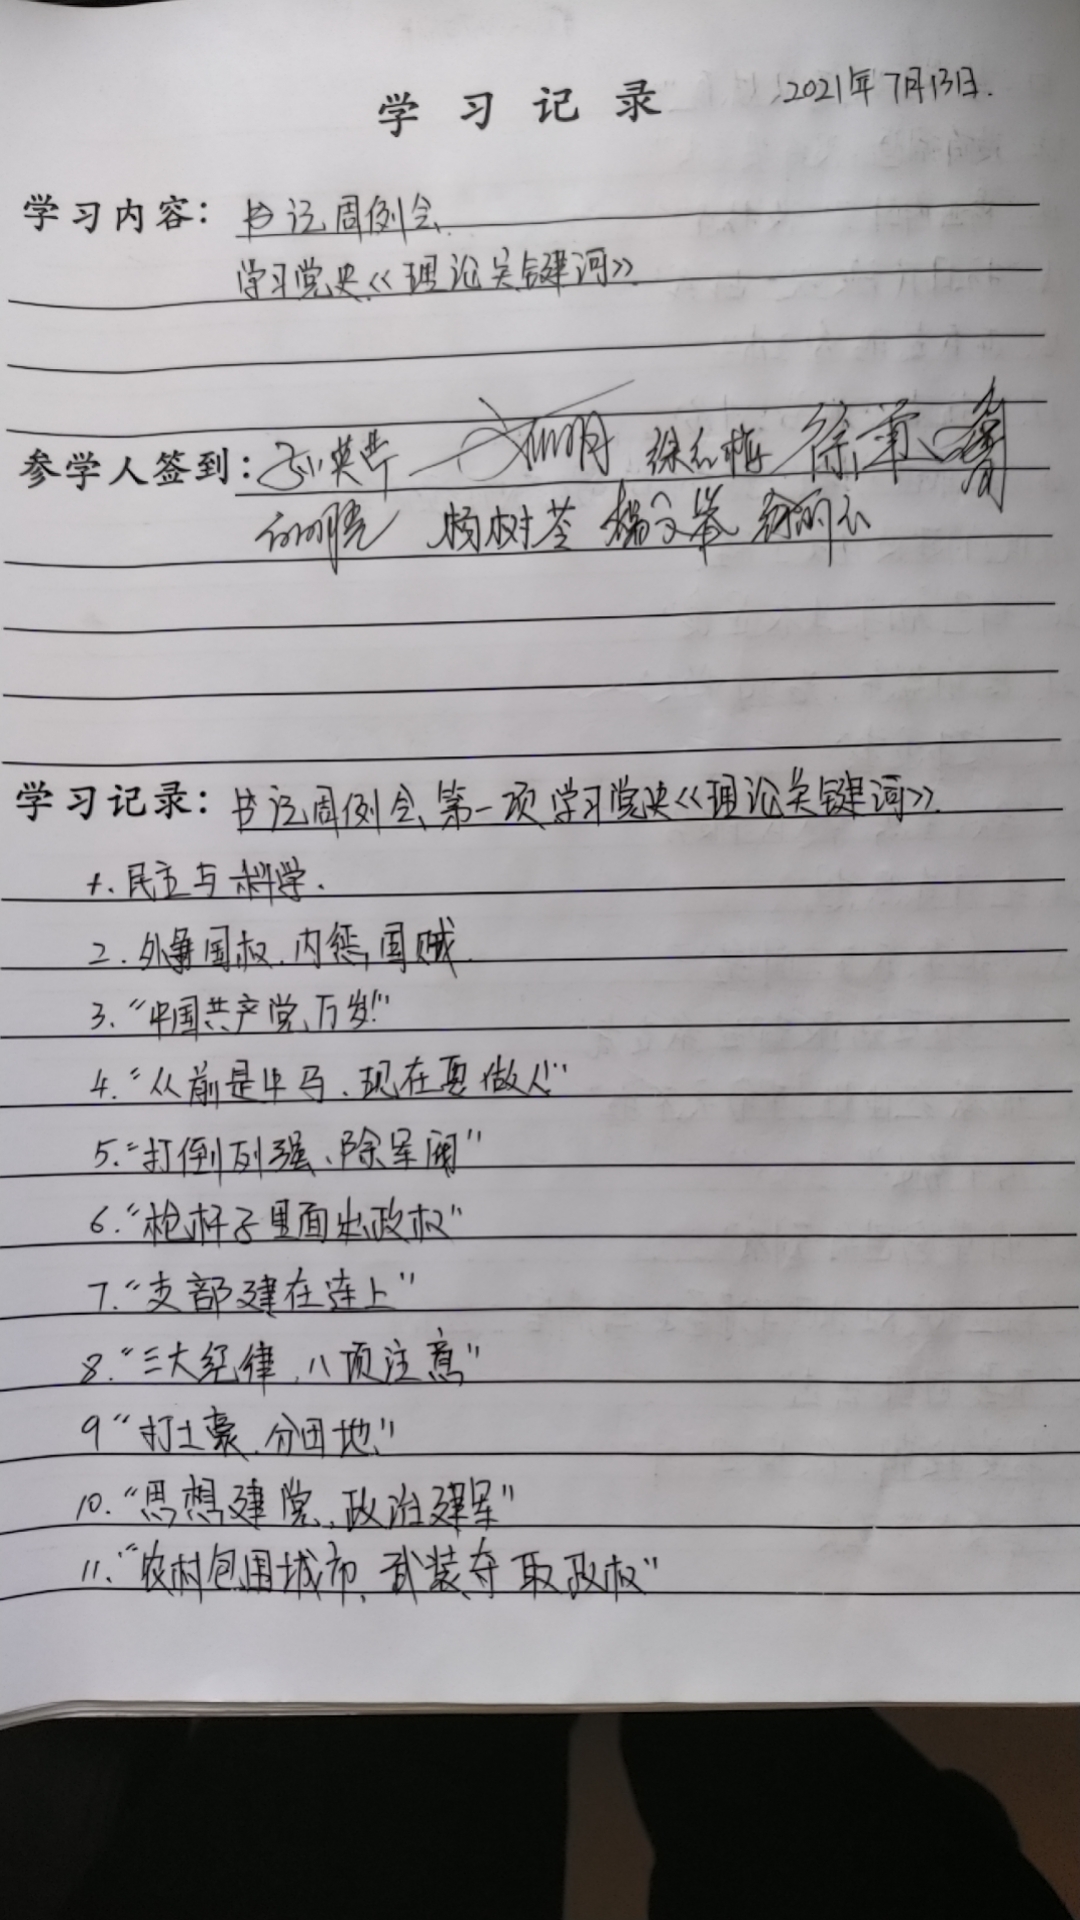 学习记录 2021年7月13日.
学习内容: 书记周例会.
学习党史《理论关键词》
参学人签到: 孙英苹
杨树苓 杨文举
学习记录: 书记周例会,第一项学习党史《理论关键词》.
1. 民主与科学.
2. 外争国权.内惩国贼.
3. “中国共产党万岁!”
4. “从前是牛马、现在要做人”
5. “打倒列强、除军阀”
6. “枪杆子里面出政权”
7. “支部建在连上”
8. “三大纪律,八项注意”
9 “打土豪.分田地”
10. “思想建党,政治建军”
11. “农村包围城市,武装夺取政权”